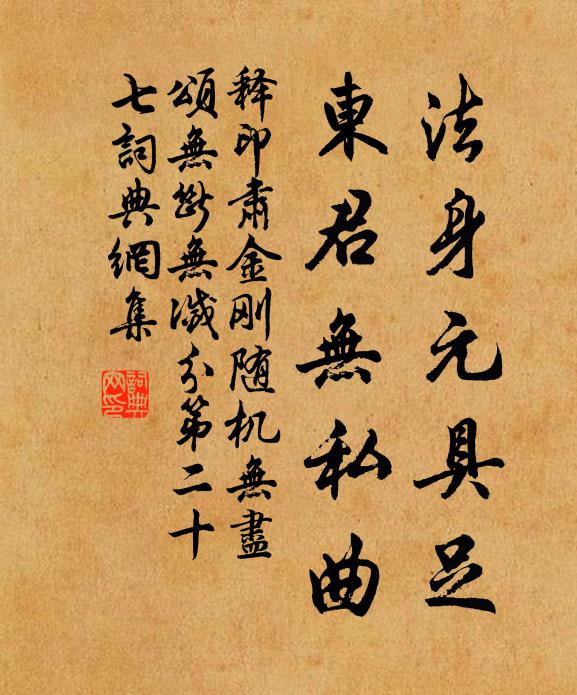 法身元具足
東君無私曲
释印肃金刚随机無盡
頌無断無滅分第二十
七詞典網集
詞典
网印